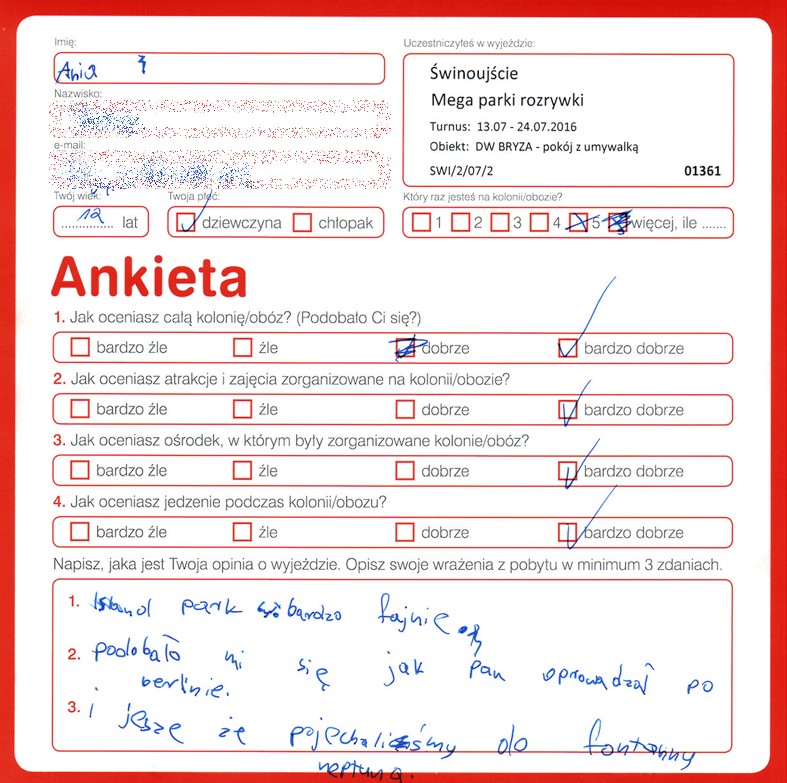 Imię:
Uczestniczyłeś w wyjeździe:
Ania
Świnoujście
Mega parki rozrywki
Turnus: 13.07 - 24.07.2016
Obiekt: DW BRYZA - pokój z umywalką
SWI/2/07/2 01361
Nazwisko:
e-mail:
Twój wiek: Twoja płeć: Który raz jesteś na kolonii/obozie?
12 lat dziewczyna chłopak 1 2 3 4 5 więcej, ile .......
Ankieta
1. Jak oceniasz całą kolonię/obóz? (Podobało Ci się?)
bardzo źle źle dobrze bardzo dobrze
2. Jak oceniasz atrakcje i zajęcia zorganizowane na kolonii/obozie?
bardzo źle źle dobrze bardzo dobrze
3. Jak oceniasz ośrodek, w którym były zorganizowane kolonie/obóz?
bardzo źle źle dobrze bardzo dobrze
4. Jak oceniasz jedzenie podczas kolonii/obozu?
bardzo źle źle dobrze bardzo dobrze
Napisz, jaka jest Twoja opinia o wyjeździe. Opisz swoje wrażenia z pobytu w minimum 3 zdaniach.
1. park bardzo fajnie
2. podobało mi się jak pan oprowadzał po
berlinie.
3. i jeszę że pojechaliśmy do fontanny
neptuna.